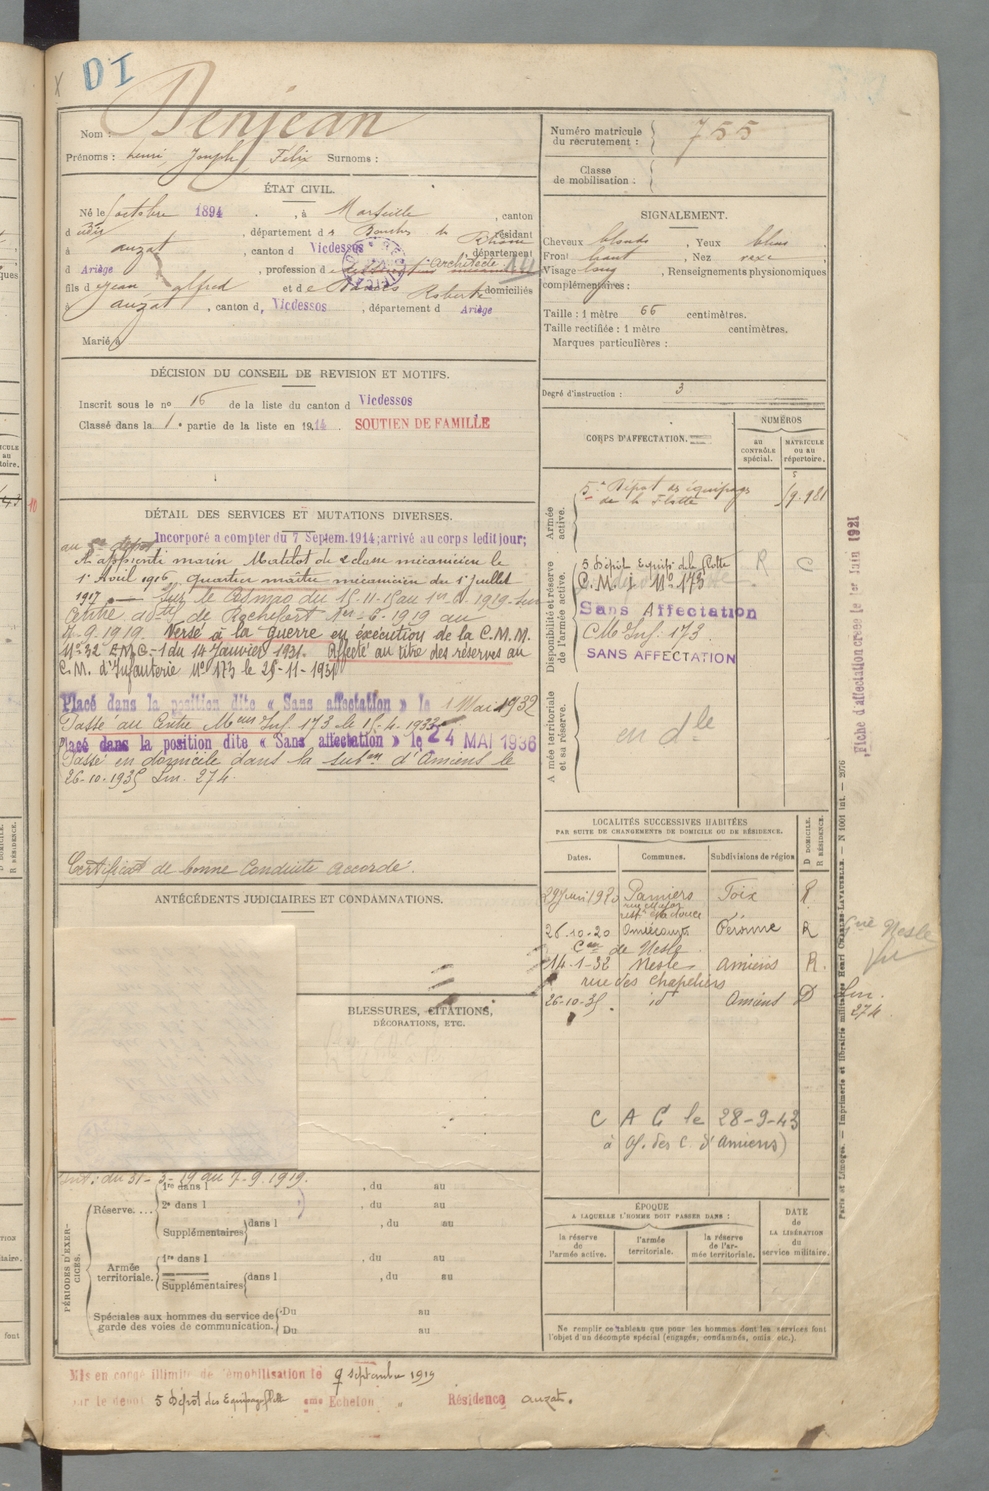 DI
Nom : Denjean
Prénoms : henri, Joseph, Félix Surnoms :
ÉTAT CIVIL.
Né le octobre 1894, à Marseille, canton
d, département d s Bouches du Rhône, résidant
à auzat, canton d Vicdessos, département
d Ariège, profession d Architecte
fils d jean alfred et de Roberte domiciliés
à auzat, canton d, Vicdessos, département d Ariège
Marié à
DÉCISION DU CONSEIL DE REVISION ET MOTIFS.
Inscrit sous le no 16 de la liste du canton d Vicdessos
Classé dans la 1 e partie de la liste en 1914 SOUTIEN DE FAMILLE
DÉTAIL DES SERVICES ET MUTATIONS DIVERSES.
au 5e dépôt Incorporé a compter du 7 Septem. 1914; arrivé au corps ledit jour;
apprenti marin Matelot de 2 classe mécanicien le
1er Avril 1916, quartier maître mécanicien du 1er juillet
1917
Centre de Rochefort 6-1919 au
9.1919. Versé à la guerre en éxécution de la C.M.M.
No 32 E.M.G.-1 du 14 Janvier 1931. Affecté au titre des réserves au
C.M. d'Infanterie No 173 le 25-11-1931
Placé dans la position dite « Sans affectation » le 1 Mai 1932
Passé au Centre Mon Inf. 173 le 15-4-1933
Placé dans la position dite « Sans affectation » le 24 MAI 1936
Passé en domicile dans la subon d'Amiens le
26-10-1935 Lm. 274.
Certificat de bonne Conduite accordé.
ANTÉCÉDENTS JUDICIAIRES ET CONDAMNATIONS.
BLESSURES, CITATIONS,
DÉCORATIONS, ETC.
du 31-3-19 au 7-9.1919.
PÉRIODES D'EXERCICES.
Réserve....
1re dans l , du au
2e dans l , du au
Supplémentaires dans l , du au
Armée territoriale.
1re dans l , du au
Supplémentaires dans l , du au
Spéciales aux hommes du service de garde des voies de communication.
Du au
Du au
Mis en congé illimité de démobilisation le 9 septembre 1919
par le dépôt 5 Dépôt des Equipages Flotte eme Echelon " Résidence auzat.
Numéro matricule du recrutement : 755
Classe de mobilisation :
SIGNALEMENT.
Cheveux blonds, Yeux bleus,
Front haut, Nez vexe,
Visage long, Renseignements physionomiques
complémentaires :
Taille : 1 mètre 66 centimètres.
Taille rectifiée : 1 mètre centimètres.
Marques particulières :
Degré d'instruction : 3
CORPS D'AFFECTATION.
NUMÉROS
AU CONTRÔLE spécial.
MATRICULE OU AU répertoire.
Armée active.
5e Dépôt des équipages
de la Flotte
Disponibilité et réserve de l'armée active.
5 Dépôt Equip. de la Flotte R C
C.M. d' No 173
Sans Affectation
CM Inf. 173.
SANS AFFECTATION
Armée territoriale et sa réserve.
en dle
LOCALITÉS SUCCESSIVES HABITÉES
PAR SUITE DE CHANGEMENTS DE DOMICILE OU DE RÉSIDENCE.
Dates. Communes. Subdivisions de région D DOMICILE. R RÉSIDENCE.
29 Juin 1920 Pamiers Foix R
rue Major
26-10-20 Péronne R
Con de Nesle
14-1-32 Nesle Amiens R.
rue des Chapeliers
26-10-35 id Amiens D
Lm. 274
C A C le 28-9-43
à Of. des C. d'Amiens)
ÉPOQUE
A LAQUELLE L'HOMME DOIT PASSER DANS :
la réserve de l'armée active.
l'armée territoriale.
la réserve de l'armée territoriale.
DATE de LA LIBÉRATION du service militaire.
Ne remplir ce tableau que pour les hommes dont les services font
l'objet d'un décompte spécial (engagés, condamnés, omis etc.).
Fiche d'affectation créée le 1er Juin 1921
Paris et Limoges. — Imprimerie et librairie militaires Henri CHARLES-LAVAUZELLE. — N° 1001 int. — 2076